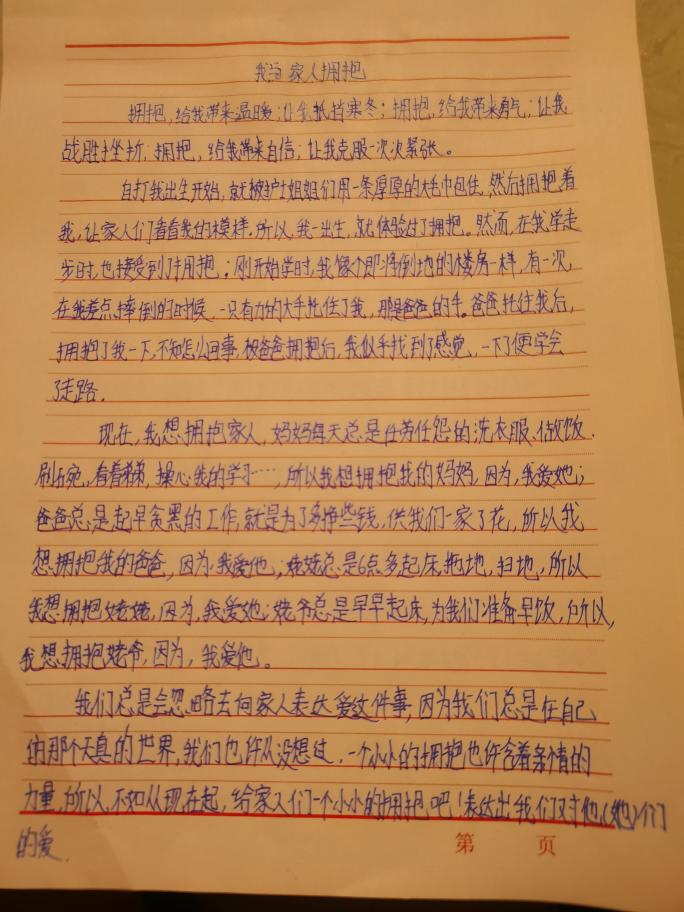 我与家人拥抱
拥抱，给我带来温暖；让我抵挡寒冬；拥抱，给我带来勇气；让我
战胜挫折；拥抱，给我带来自信；让我克服一次次紧张。
自打我出生开始，就被护士姐姐们用一条厚厚的大毛巾包住，然后拥抱着
我，让家人们看看我的模样。所以，我一出生，就体验过了拥抱。然而，在我学走
步时，也接受到了拥抱；刚开始学时，我像个即将倒地的楼房一样，有一次，
在我差点摔倒的时候，一只有力的大手托住了我，那是爸爸的手。爸爸托住我后，
拥抱了我一下，不知怎么回事，被爸爸拥抱后，我似乎找到了感觉，一下子便学会
了走路。
现在，我想拥抱家人，妈妈每天总是任劳任怨的洗衣服、做饭、
刷碗、看着弟弟，操心我的学习……，所以我想拥抱我的妈妈，因为，我爱她；
爸爸总是起早贪黑的工作，就是为了多挣些钱，供我们一家子花，所以我
想拥抱我的爸爸，因为，我爱他；姥姥总是6点多起床，拖地，扫地，所以
我想拥抱姥姥，因为，我爱她；姥爷总是早早起床，为我们准备早饭，所以，
我想拥抱姥爷，因为，我爱他。
我们总是会忽略去向家人表达爱这件事，因为我们总是在自己
的那个天真的世界，我们也许从没想过，一个小小的拥抱也许含着亲情的
力量，所以，不如从现在起，给家人们一个小小的拥抱吧！表达出我们对他（她）们
的爱．
第 页